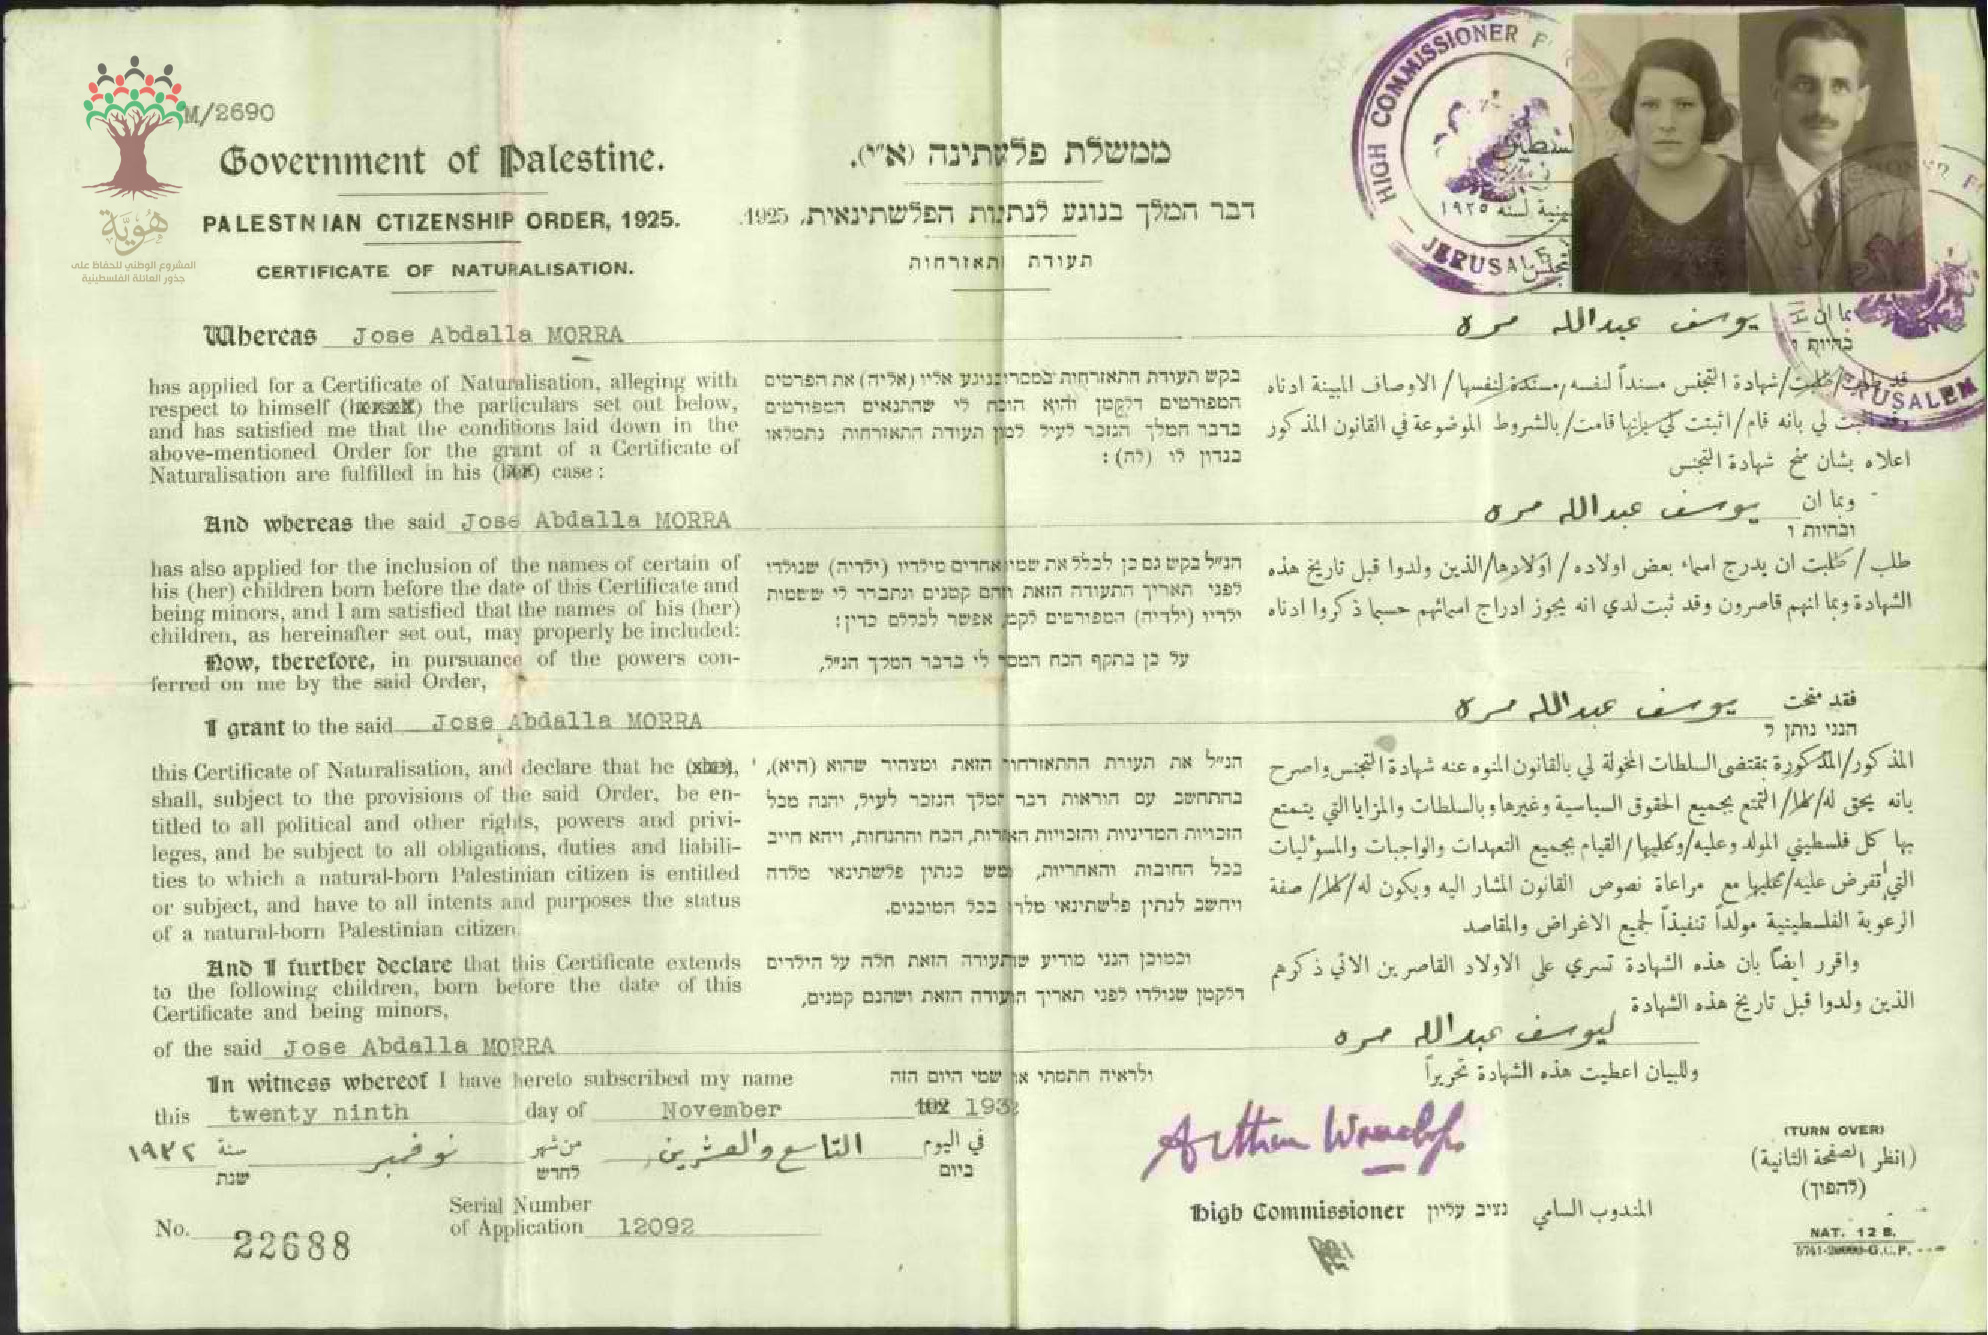 M/2690
هُوِيَّة
المشروع الوطني للحفاظ على
جذور العائلة الفلسطينية
Government of Palestine.
PALESTNIAN CTIZENSHIP ORDER, 1925.
CERTIFICATE OF NATURALISATION.
ממשלת פלשתינה (א״י).
דבר המלך בנוגע לנתינות הפלשתינאית, 1925.
תעודת התאזרחות
HIGH COMMISSIONER F
JERUSALE
JERUSALEM
Whereas Jose Abdalla MORRA
بما ان يوسف عبدالله مره
בהיות ו
has applied for a Certificate of Naturalisation, alleging with
respect to himself (herself) the particulars set out below,
and has satisfied me that the conditions laid down in the
above-mentioned Order for the grant of a Certificate of
Naturalisation are fulfilled in his (her) case:
בקש תעודת התאזרחות בנוגע אליו (אליה) את הפרטים
המפורטים דלקמן והוא הוכח לי שהתנאים המפורטים
בדבר המלך הנזכר לעיל למתן תעודת התאזרחות נתמלאו
בנדון לו (לה):
قد طلب/طلبت/شهادة التجنس مسنداً لنفسه/مسندة لنفسها/ الاوصاف المبينة ادناه
وقد اثبت لي بانه قام/اثبتت لي بانها قامت/بالشروط الموضوعة في القانون المذكور
اعلاه بشان منح شهادة التجنس
And whereas the said Jose Abdalla MORRA
وبما ان يوسف عبدالله مره
ובהיות ו
has also applied for the inclusion of the names of certain of
his (her) children born before the date of this Certificate and
being minors, and I am satisfied that the names of his (her)
children, as hereinafter set out, may properly be included:
Now, therefore, in pursuance of the powers con-
ferred on me by the said Order,
הנ״ל בקש גם כן לכלל את שמו אחדים מילדיו (ילדיה) שנולדו
לפני תאריך התעודה הזאת והם קטנים ונתברר לי ששמות
ילדיו (ילדיה) המפורטים לקמן אפשר לכללם כדין:
על כן בתקף הכח המסר לי בדבר המלך הנ״ל,
طلب / طلبت ان يدرج اسماء بعض اولاده / اولادها/الذين ولدوا قبل تاريخ هذه
الشهادة وبما انهم قاصرون وقد ثبت لدي انه يجوز ادراج اسمائهم حسبما ذكروا ادناه
I grant to the said Jose Abdalla MORRA
فقد منحت يوسف عبدالله مره
הנני נותן ל
this Certificate of Naturalisation, and declare that he (she),
shall, subject to the provisions of the said Order, be en-
titled to all political and other rights, powers and privi-
leges, and be subject to all obligations, duties and liabili-
ties to which a natural-born Palestinian citizen is entitled
or subject, and have to all intents and purposes the status
of a natural-born Palestinian citizen.
הנ״ל את תעודת ההתאזרחות הזאת ומצהיר שהוא (היא),
בהתחשב עם הוראות דבר המלך הנזכר לעיל, יהנה מכל
הזכויות המדיניות והזכויות האחרות, הכח וההנחות, ויהא חייב
בכל החובות והאחריות, ממש כנתין פלשתינאי מלדה
ויחשב לנתין פלשתינאי מלדה בכל המובנים.
المذكور/المذكورة بمقتضى السلطات المخولة لي بالقانون المنوه عنه شهادة التجنس واصرح
بانه يحق له/لها/ التمتع بجميع الحقوق السياسية وغيرها وبالسلطات والمزايا التي يتمتع
بها كل فلسطيني المولد وعليه/وعليها/ القيام بجميع التعهدات والواجبات والمسؤليات
التي تفرض عليه/عليها مع مراعاة نصوص القانون المشار اليه ويكون له/لها/ صفة
الرعوية الفلسطينية مولداً تنفيذاً لجميع الاغراض والمقاصد
And I further declare that this Certificate extends
to the following children, born before the date of this
Certificate and being minors,
וכמוכן הנני מודיע שהתעודה הזאת חלה על הילדים
דלקמן שנולדו לפני תאריך התעודה הזאת ושהנם קטנים,
واقرر ايضاً بان هذه الشهادة تسري على الاولاد القاصرين الاتي ذكرهم
الذين ولدوا قبل تاريخ هذه الشهادة
of the said Jose Abdalla MORRA
ليوسف عبدالله مره
In witness whereof I have hereto subscribed my name
ולראיה חתמתי את שמי היום הזה
وللبيان اعطيت هذه الشهادة تحريراً
this twenty ninth day of November 193
في اليوم التاسع والعشرين من شهر نوفمبر سنة ١٩٣٢
ביום לחדש שנת
Arthur Wauchope
High Commissioner נציב עליון المندوب السامي
(TURN OVER)
(انظر الصفحة الثانية)
(להפוך)
No. 22688
Serial Number
of Application 12092
NAT. 12 B.